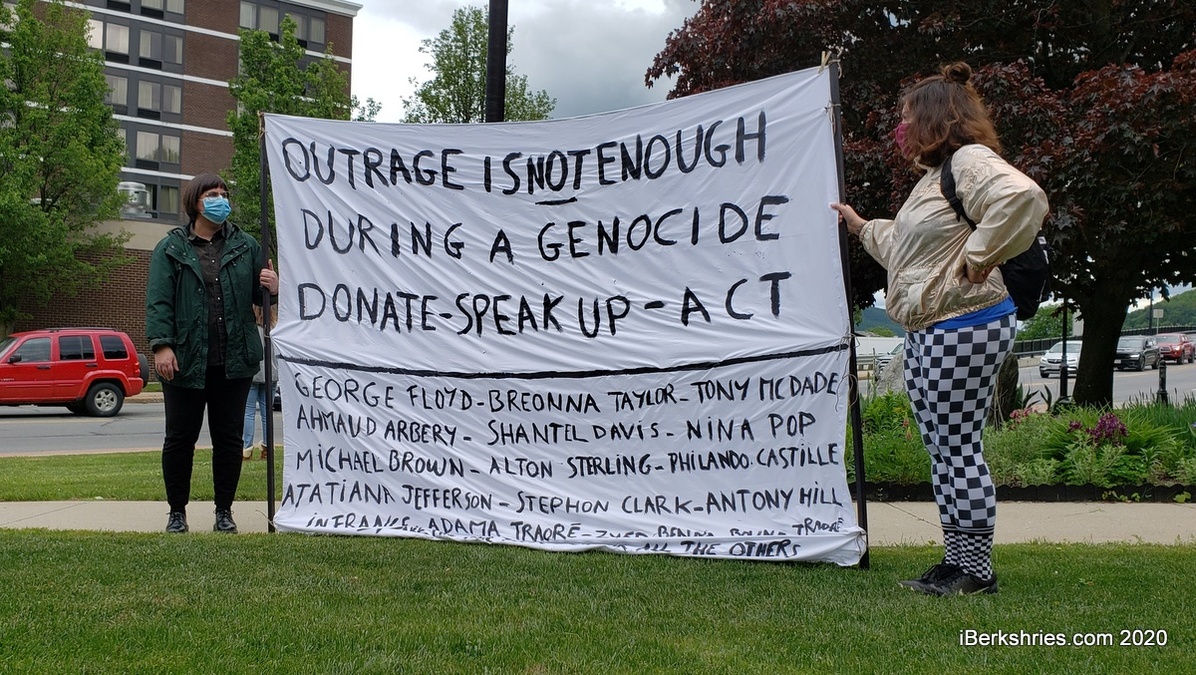 OUTRAGE IS NOT ENOUGH
DURING A GENOCIDE
DONATE-SPEAK UP-ACT
GEORGE FLOYD-BREONNA TAYLOR-TONY MCDADE
AHMAUD ARBERY-SHANTEL DAVIS-NINA POP
MICHAEL BROWN-ALTON STERLING-PHILANDO CASTILLE
ATATIANA JEFFERSON-STEPHON CLARK-ANTONY HILL
IN FRANCE ADAMA TRAORÉ- TRAORÉ
ALL THE OTHERS
iBerkshries.com 2020